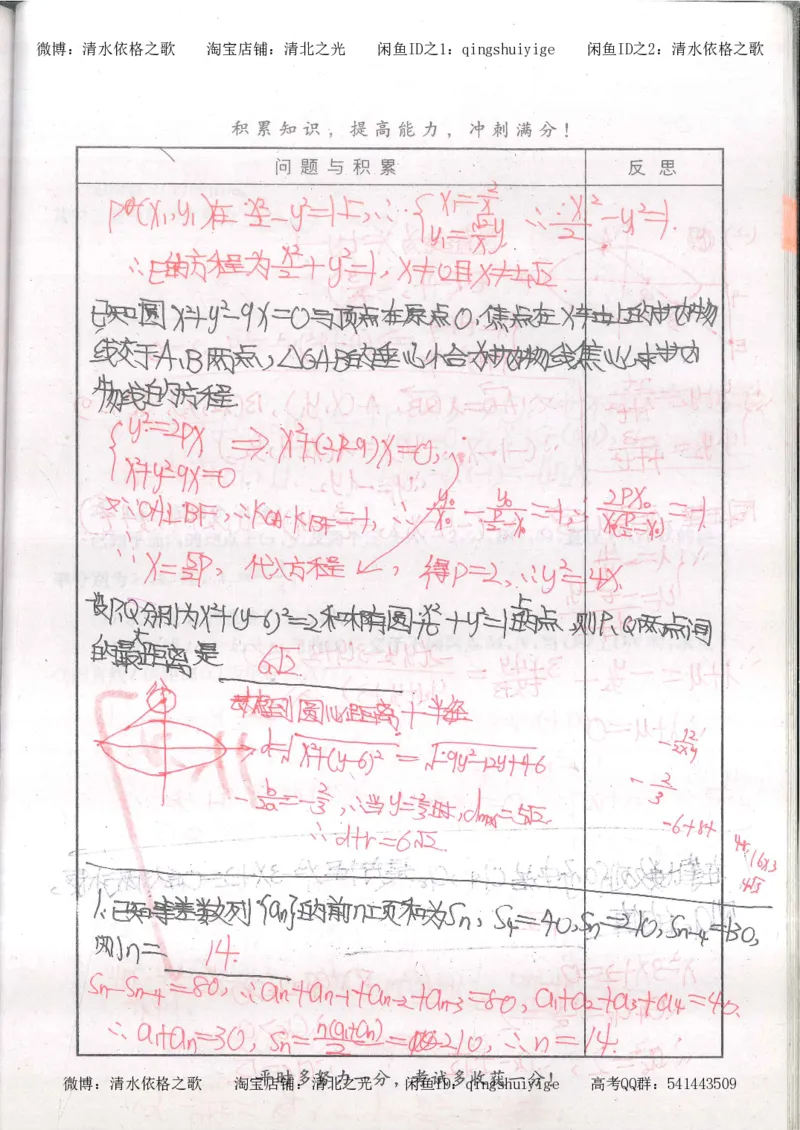 微博：清水依格之歌 淘宝店铺：清北之光 闲鱼ID之1：qingshuiyige 闲鱼ID之2：清水依格之歌
积累知识，提高能力，冲刺满分！
问题与积累 反思
P(x₁,y₁)在x²/2-y²=1上,∴{x₁=2/x y₁=√2y/x ∴x₁²/2-y₁²=1.
∴E的方程为x²/2+y²=1,x≠0且x≠±√2.
已知圆x²+y²-9x=0与顶点在原点O,焦点在x轴上的抛物
线交于A,B两点,△OAB的垂心恰为抛物线焦点,求抛
物线的方程
{y²=2px ⇒x²+(2p-9)x=0,
x²+y²-9x=0
又∵OA⊥BF,∴kOA·kBF=-1,∴y₀/x₀·y₀/(p/2-x₀)=1,∴2px₀/x₀(p/2-x₀)=-1
∴x=5/2p,代入方程↙,得p=2,∴y²=4x.
设P,Q分别为x²+(y-6)²=2和椭圆x²/10+y²=1上的点,则P,Q两点间
的最大距离是 6√2
考虑到圆心距离+半径
d=√x²+(y-6)² =√-9y²-12y+46
-b/2a=-2/3,∴当y=-2/3时,dmax=5√2.
∴d+r=6√2.
-12/2×9
-2/3
-6+84
1.已知等差数列{an}的前n项和为Sn,S4=40,Sn=210,Sn-4=130,
则n= 14.
Sn-Sn-4=80,∴an+an-1+an-2+an-3=80,a1+a2+a3+a4=40.
∴a1+an=30,Sn=n(a1+an)/2=210,∴n=14.
平时多努力一分，考试多收获一分！
微博：清水依格之歌 淘宝店铺：清北之光 闲鱼ID：qingshuiyige 高考QQ群：541443509